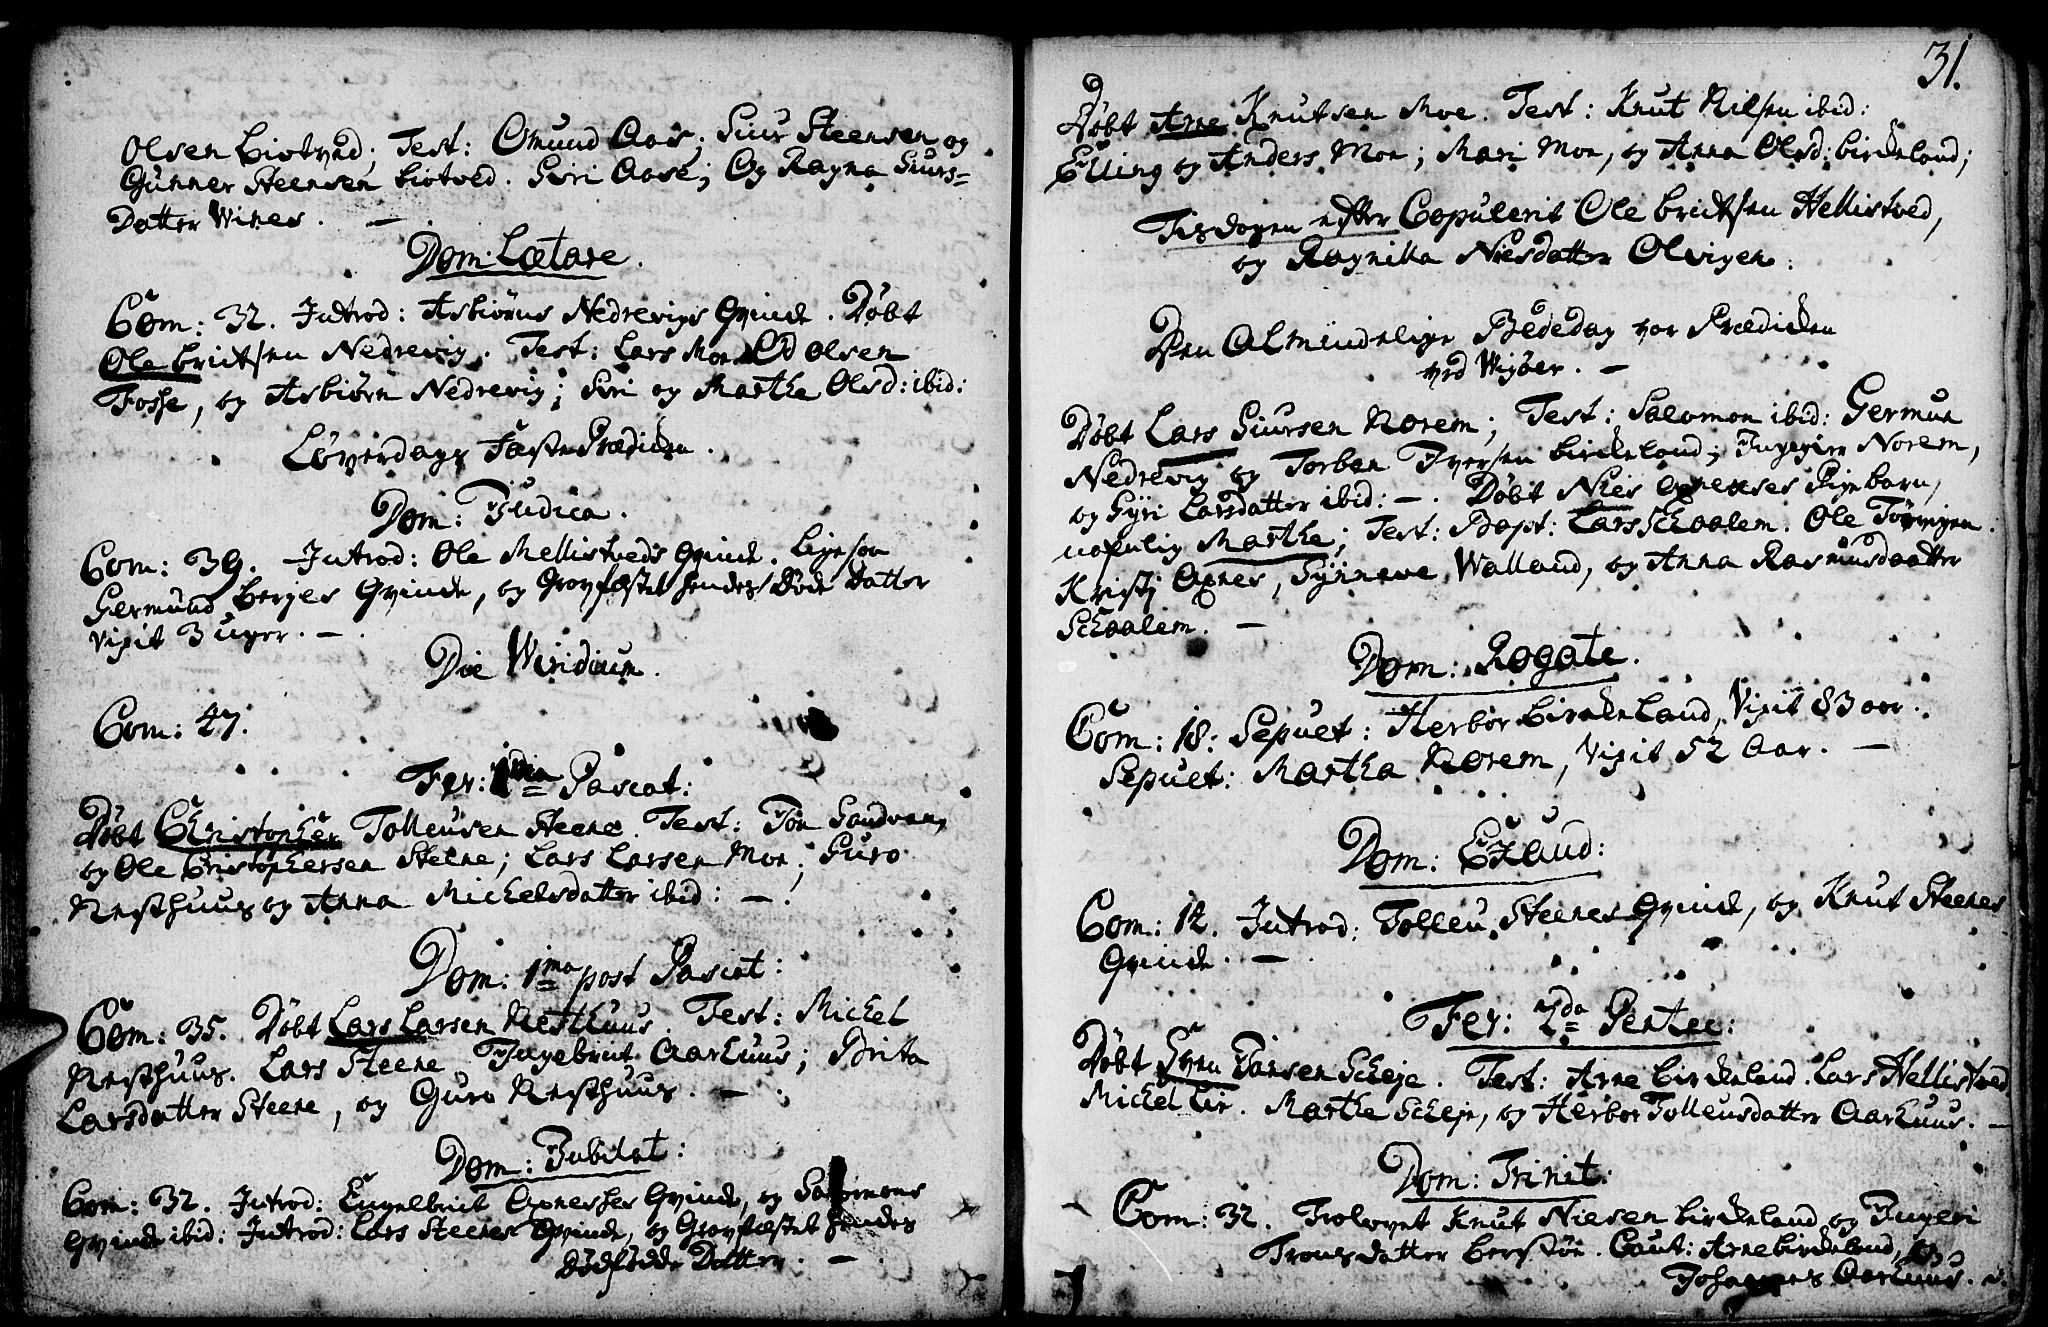 Olsen Liotved; Test: Omund Aas; Siur Steensen og
Gunner Steensen Liotved. Siri Aase; Og Ragna Siurs-
Datter Wines. —
Dom: Lætare.
Com: 32. Introd: Asbiörns Nedrevigs Qvinde. Döbt
Ole Britsen Nedrevig. Test: Lars Moe Ed Olsen
Fosse, og Asbiörn Nedrevig; Siri og Martha Olsd: ibid:
Löverdags Faste Prædiken.
Dom: Judica.
Com: 39. Introd: Ole Mellistveds Qvinde. Ligesaa
Germund Berjes Qvinde, og Gravfæstet hendes Döde Datter
Vixit 3 uger. —
Die Wiridium.
Com: 47.
Fer: 1ma Pascat:
Döbt Christopher Tolleusen Steene. Test: Tön Sandvaa,
og Ole Cristophersen Steene; Lars Larsen Moe; Guro
Næsthuus og Anna Michelsdatter ibid: —
Dom: 1ma post Pascat:
Com: 35. Döbt Lars Larsen Næsthuus. Test: Michel
Næsthuus. Lars Steene Ingebrit Aarhuus; Brita
Larsdatter Steene, og Guro Næsthuus. —
Dom: Jubilat:
Com: 32. Introd: Engelbrit Oxnesses Qvinde, og Salomons
Qvinde ibid: Introd: Lars Steenes Qvinde, og Gravfæstet hendes
Dödfödde Datter. —
31.
Döbt Arne Knutsen Moe. Test: Knut Nilsen ibid:
Elling og Anders Moe; Mari Moe, og Anna Olsd: Birkeland;
Tisdagen efter Copulerit Ole Britsen Hellistved,
og Ragnilla Niesdatter Olvigen.
Den Almindelige Bededag var Prædiken
ved Wigöer. —
Döbt Lars Siursen Norem; Test: Salomon ibid: Germun
Nedrevig og Torben Iversen Birkeland; Ingegier Norem,
og Gyri Larsdatter ibid: —. Döbt Nies Oxneses Pigebarn,
navnlig Martha; Test: Bapt: Lars Schaalem. Ole Tövingen.
Kristj Oxnes, Synneve Walland, og Anna Rasmusdaatter
Schaalem. —
Dom: Rogate.
Com: 18: Sepult: Herbor Birkeland, Vixit 83 aar.
Sepult: Martha Norem, Vixit 52 Aar. —
Dom: Exaud:
Com: 12. Introd: Tolleu Steenes Qvinde, og Knut Steenes
Qvinde. —
Fer: 2da Pentec:
Döbt Sven Jansen Scheje. Test: Arne Birkeland. Lars Hellistved,
Michel Lir. Martha Scheje, og Herbor Tolleusdatter Aarhuus. —
Dom: Trinit:
Com: 32. Trolovet Knut Niesen Birkeland og Ingeri
Tronsdatter Berstöe. Caut: Arne Birkeland, og
Johannes Aarhuus.